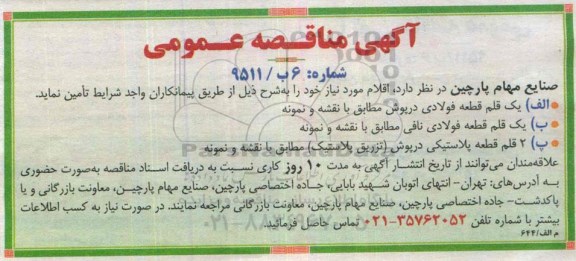 آگهی مناقصه عمومی
شماره: ۶ب/۹۵۱۱
صنایع مهام پارچین در نظر دارد، اقلام مورد نیاز خود را به‌شرح ذیل از طریق پیمانکاران واجد شرایط تأمین نماید.
الف) یک قلم قطعه فولادی درپوش مطابق با نقشه و نمونه
ب) یک قلم قطعه فولادی نافی مطابق با نقشه و نمونه
پ) ۲ قلم قطعه پلاستیکی درپوش (تزریق پلاستیک) مطابق با نقشه و نمونه
علاقه‌مندان می‌توانند از تاریخ انتشار آگهی به مدت ۱۰ روز کاری نسبت به دریافت اسناد مناقصه به‌صورت حضوری
به آدرس‌های: تهران- انتهای اتوبان شهید بابایی، جاده اختصاصی پارچین، صنایع مهام پارچین، معاونت بازرگانی و یا
پاکدشت- جاده اختصاصی پارچین، صنایع مهام پارچین، معاونت بازرگانی مراجعه نمایند. در صورت نیاز به کسب اطلاعات
بیشتر با شماره تلفن ۳۵۷۶۲۰۵۲-۰۲۱ تماس حاصل فرمائید.
م الف/۶۴۴